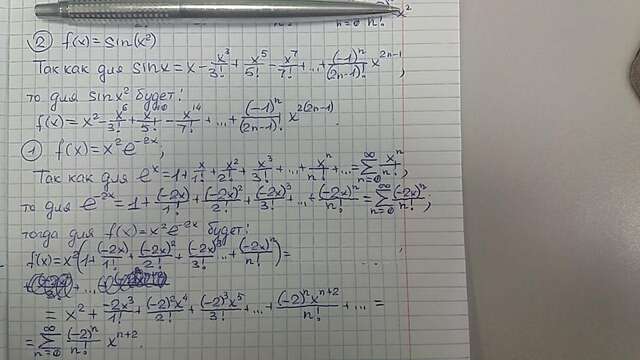 n=0 n! x²
② f(x)=sin(x²)
Так как для sinx = x - x³/3! + x⁵/5! - x⁷/7! + ... + (-1)ⁿ/(2n-1)! x²ⁿ⁻¹,
то для sinx² будет:
f(x)= x² - x⁶/3! + x¹⁰/5! - x¹⁴/7! + ... + (-1)ⁿ/(2n-1)! x²⁽²ⁿ⁻¹⁾.
① f(x)= x²e⁻²ˣ;
Так как для eˣ = 1 + x/1! + x²/2! + x³/3! + ... + xⁿ/n! + ... = ∞∑n=0 xⁿ/n!,
то для e⁻²ˣ = 1 + (-2x)/1! + (-2x)²/2! + (-2x)³/3! + ... + (-2x)ⁿ/n! = ∞∑n=0 (-2x)ⁿ/n!;
тогда для f(x)= x²e⁻²ˣ будет:
f(x)= x²(1 + (-2x)/1! + (-2x)²/2! + (-2x)³/3! ... + (-2x)ⁿ/n!) =
= x² + -2x³/1! + (-2)²x⁴/2! + (-2)³x⁵/3! + ... + (-2)ⁿxⁿ⁺²/n! + ... =
= ∞∑n=0 (-2)ⁿ/n! xⁿ⁺².